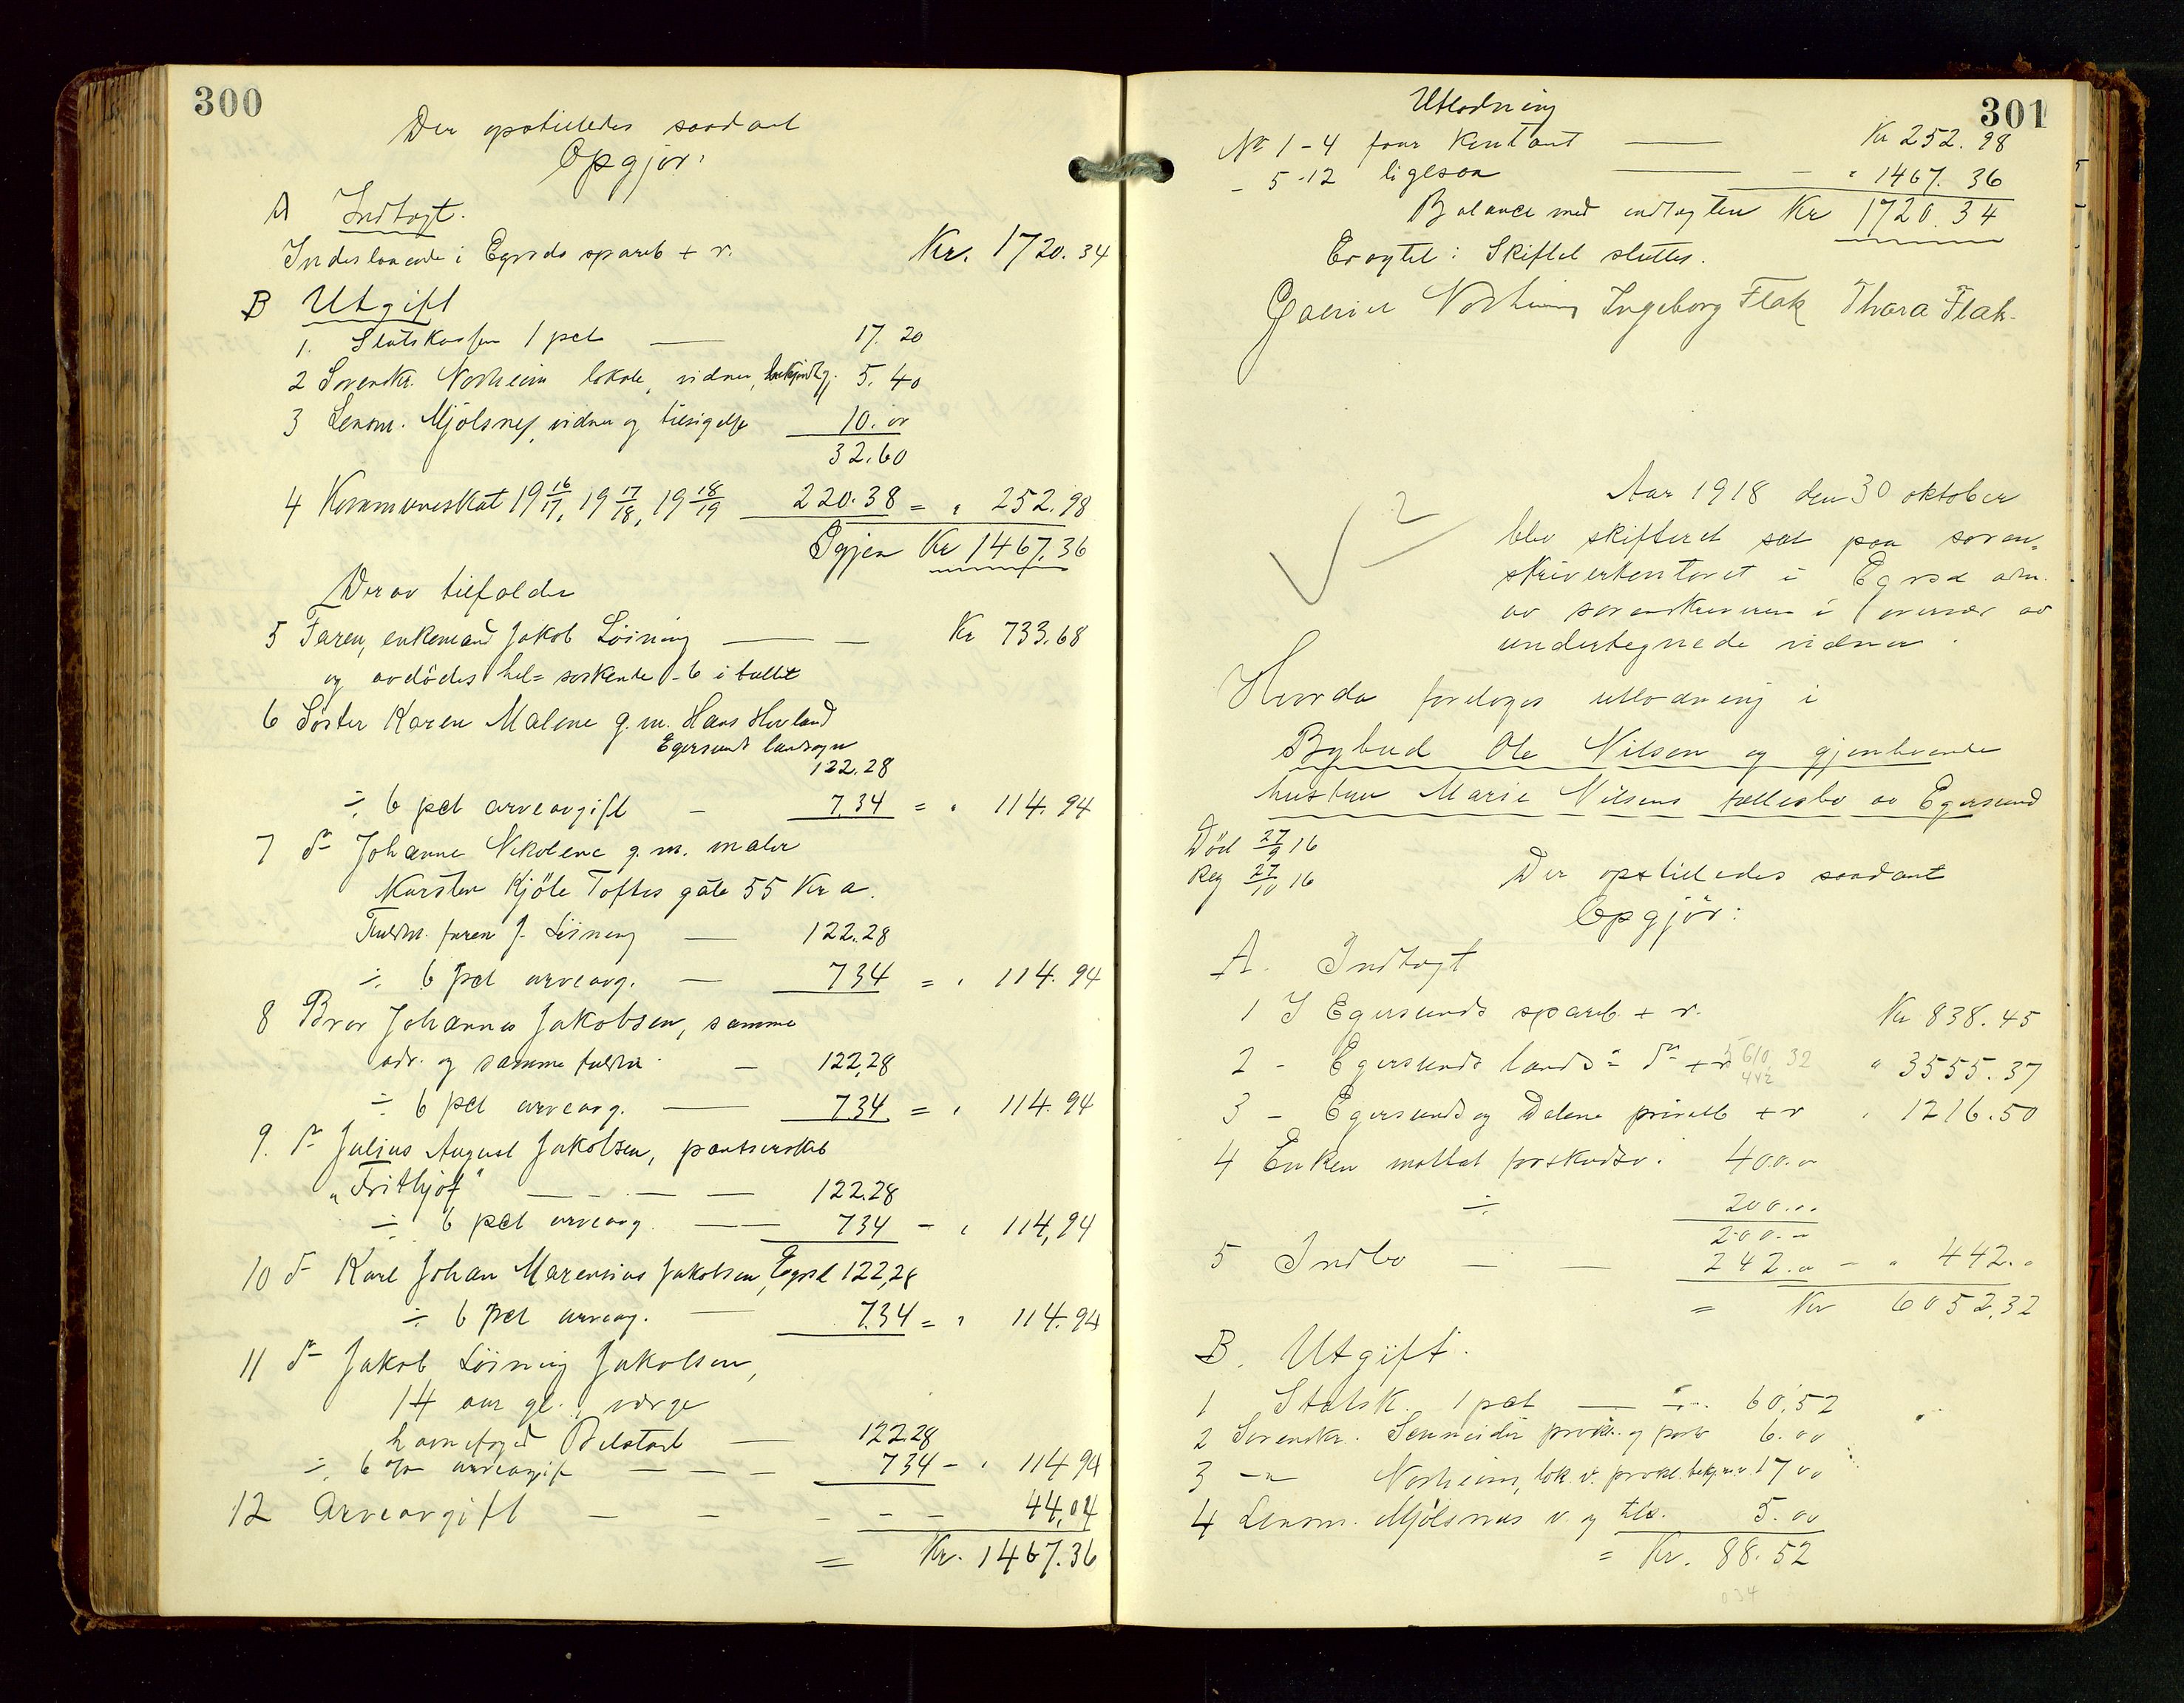 300
Der opstilledes saadant
Opgjør:
A Indtægt.
Indestaaende i Egrsds spareb + r. Kr. 1720.34
B Utgift
1. Statskassen 1 pct — 17.20
2 Sorenskr. Norheim lokale, vidner, bekjendtgj. 5.40
3 Lensm. Mjølsnes, vidner og tilsigelse 10.00
32.60
4 Kommuneskat 19 16/17, 19 17/18, 19 18/19 220.38 = " 252.98
Igjen Kr 1467.36
Derav tilfalder
5 Faren, enkemand Jakob Løining — — Kr 733.68
og avdødes hel= søskende - 6 i tallet
6 Søster Karen Malene g.m. Hans Hovland
Egersunds landsogn
122.28
÷ 6 pct arveavgift - 7.34 = " 114.94
7 do Johanne Nikolene g.m. maler
Karsten Kjöle Toftes gate 55 Kr a.
Fuldm. faren J. Løining — 122.28
÷ 6 pct arveavg. — 7 34 = " 114.94
8 Bror Johannes Jakobsen, samme
adr. og samme fuldm. - 122,28
÷ 6 pct arveavg. — 7.34 = " 114.94
9. do Julius August Jakobsen, pantserskib
"Frithjof" — - — — 122.28
÷ 6 pct arveavg. — — 7 34 - " 114,94
10 do Karl Johan Marensius Jakobsen, Egrsd 122,28
÷ 6 pct arveavg. — 7.34 = " 114.94
11 do Jakob Løining Jakobsen,
14 aar gl., værge
havnefoged Bilstad — 122.28
÷ 6 % arveavgift — — — 7 34 - " 114 94
12 Arveavgift — - - - - 44,04
= Kr. 1467.36
301
Utlodning
No 1 - 4 faar kontant — Kr 252.98
- 5 - 12 ligesaa — - " 1467.36
Balance med indtægten Kr 1720.34
Eragtet: Skiftet sluttes.
Norheim Ingeborg Flak Thora Flak
V 2
Aar 1918 den 30 oktober
blev skifteret sat paa soren-
skriverkontoret i Egrsd adm.
av sorenskriveren i overvær av
undertegnede vidner.
Hvorda foretoges utlodning i
Bybud Ole Nilsen og gjenlevende
hustru Marie Nilsens fællesbo av Egersund
Död 27/9 16
Reg 27/10 16
Der opstilledes saadant
Opgjör:
A. Indtægt
1 I Egersunds spareb. + r. Kr 838.45
2 - Egersunds lands= do + r " 3555.37
5610 32
442
3 - Egersunds og Dalene privatb + r " 1216.50
4 Enken mottat forskudsv. 400.00
÷ 200.00
200.—
5 Indbo — — 242.00 - " 442.00
= Kr 6052,32
B. Utgift.
1 Statsk. 1 pct — - 60.52
2 Sorenskr. Schneider prokl. og porto 6.00
3 —"— Norheim, lok. v. prokl. bekj. m.v. 17 00
4 Lensm. Mjølsnes v. og tils. 5.00
= Kr. 88.52
034